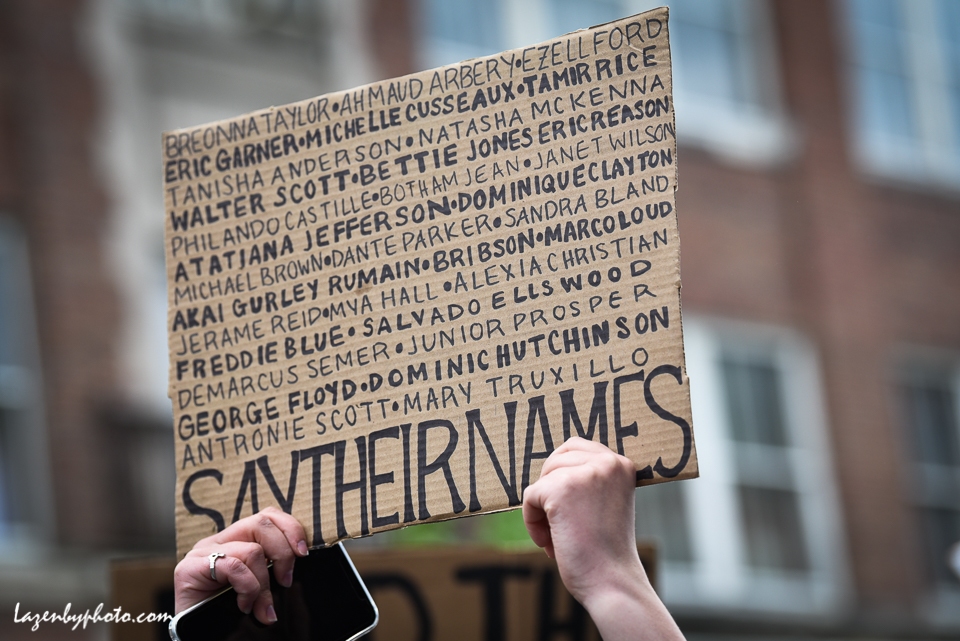 BREONNA TAYLOR • AHMAUD ARBERY • EZELL FORD
ERIC GARNER • MICHELLE CUSSEAUX • TAMIR RICE
TANISHA ANDERSON • NATASHA MCKENNA
WALTER SCOTT • BETTIE JONES ERIC REASON
PHILANDO CASTILLE • BOTHAM JEAN • JANET WILSON
ATATJANA JEFFERSON • DOMINIQUE CLAYTON
MICHAEL BROWN • DANTE PARKER • SANDRA BLAND
AKAI GURLEY RUMAIN • BRIBSON • MARCO LOUD
JERAME REID • MYA HALL • ALEXIA CHRISTIAN
FREDDIE BLUE • SALVADO ELLSWOOD
DEMARCUS SEMER • JUNIOR PROSPER
GEORGE FLOYD • DOMINIC HUTCHINSON
ANTRONIE SCOTT • MARY TRUXILLO
SAY THEIR NAMES
Lazenbyphoto.com